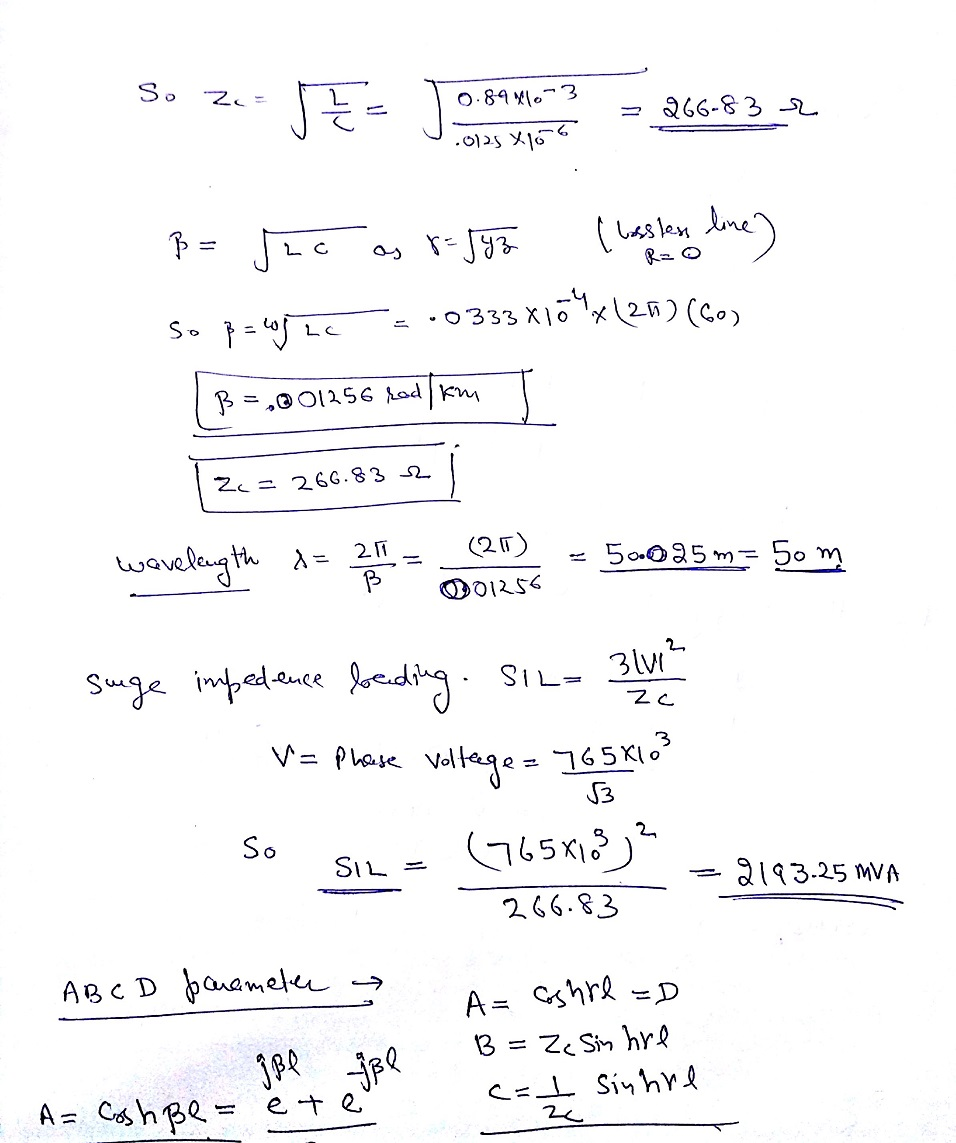 So Zc = √(L/C) = √(0.89×10⁻³ / .0125×10⁻⁶) = 266.83 Ω
β = √LC as γ = √yz (lossless line)
R=0
So β = ω√LC = .0333×10⁻⁴×(2π)(60)
β = .001256 rad/km
Zc = 266.83 Ω
wavelength λ = 2π/β = (2π)/001256 = 50.025m = 50 m
Surge impedence loading. SIL = 3|V|²/Zc
V = Phase Voltage = 765×10³/√3
So SIL = (765×10³)²/266.83 = 2193.25 MVA
ABCD parameter → A = Coshrl = D
B = Zc Sin hrl
C = 1/Zc Sinhrl
A = Coshβl = e^jβl + e^-jβl